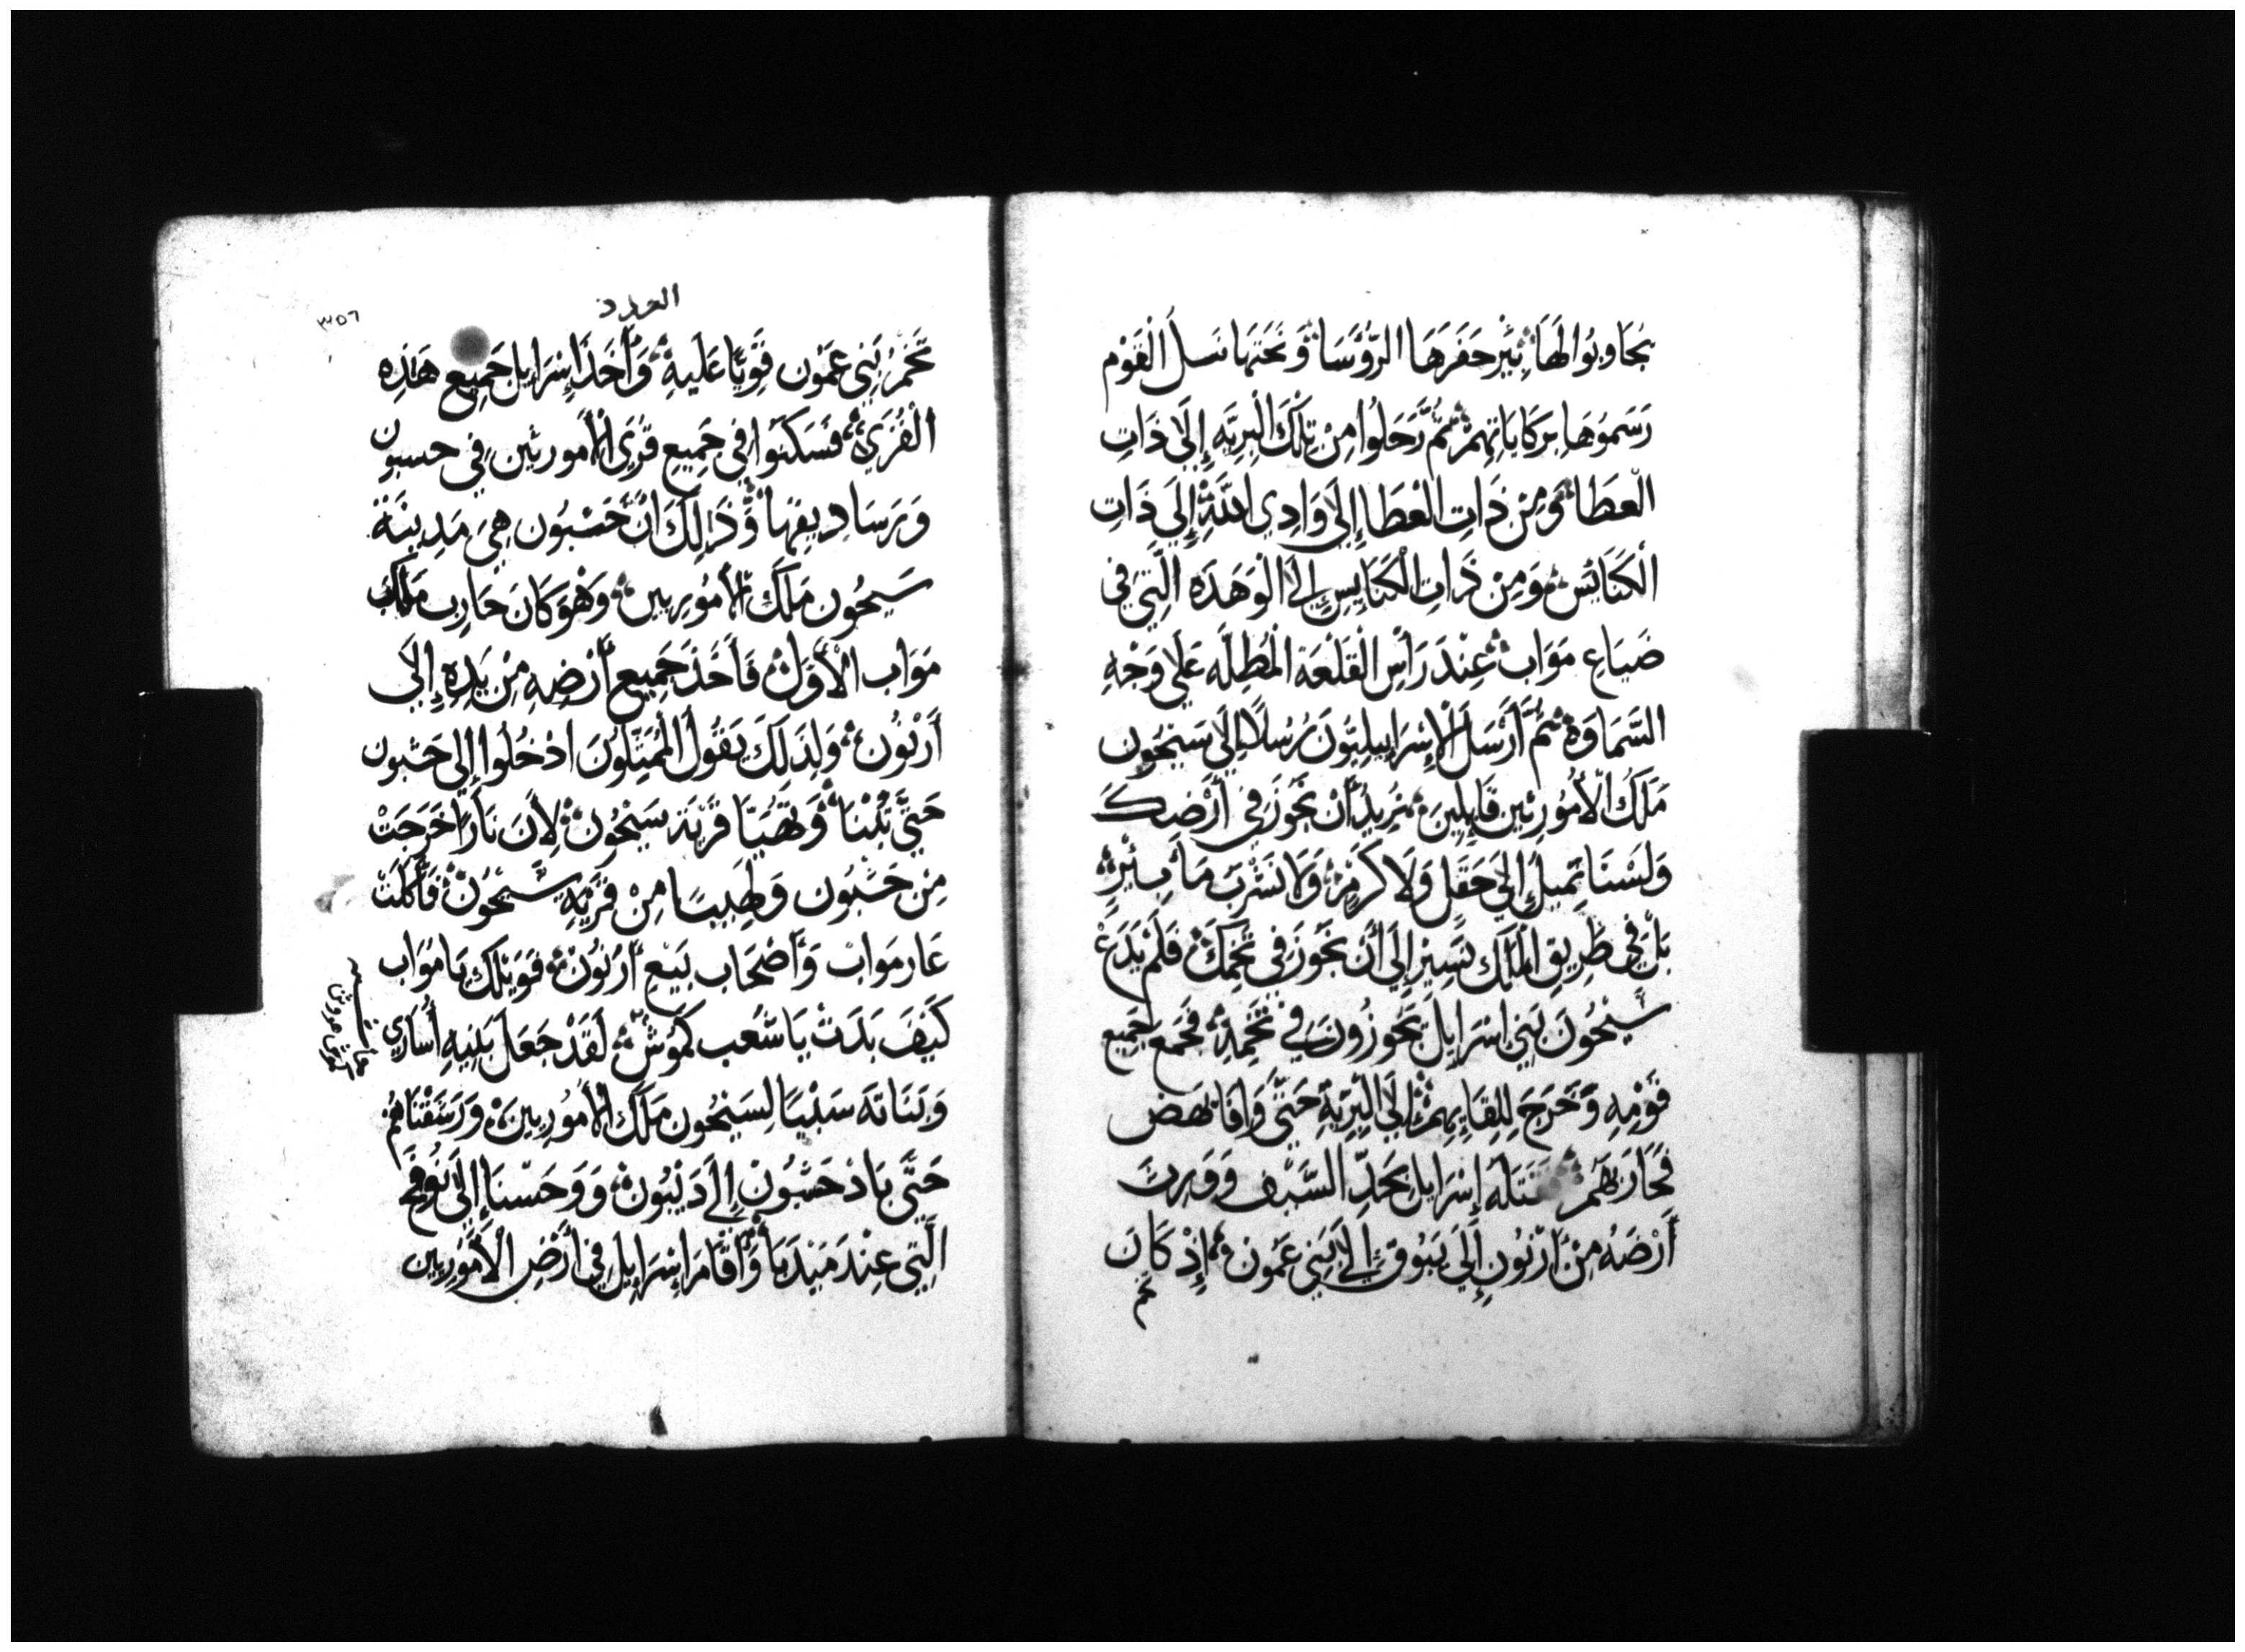 تجاوبوا لها بئر حفرها الرؤسا ونحتها نسل القوم
رسموها بركاياتهم ثم رحلوا من تلك البرية إلى ذات
العطا ومن ذات العطا إلى وادي الله إلى ذات
الكنائس ومن ذات الكنايس إلى الوهده التي في
ضياع مواب عند رأس القلعة المطله على وجه
السماوة ثم أرسل الإسرايليون رسلا إلى سيحون
ملك الأموريين قايلين نريد أن نجوز في أرضك
ولسنا نميل إلى حقل ولا كرم ولا نشرب ما بئر
بل في طريق الملك نسير إلى أن نجوز في تخمك فلم يدع
سيحون بني اسرايل يجوزون في تخمه فجمع جميع
قومه وخرج للقايهم إلى البرية حتى وافا يهص
فحاربهم فقتله إسرايل بحد السيف وورث
أرضه من أرنون إلى يبوق إلى بني عمون إذ كان
تخم
العدد
٣٥٦
تخم بني عمون قويا عليه وأخذ إسرايل جميع هذه
القرى فسكنوا في جميع قرى الأموريين في حسبون
ورساديقها وذلك ان حشبون هي مدينة
سيحون ملك الأموريين وهو كان حارب ملك
مواب الأول فاخذ جميع أرضه من يده إلى
أرنون ولذلك يقول الممثلون ادخلوا إلى حشبون
حتى تبنا وتهيا قرية سيحون لأن نارا خرجت
من حشبون ولهيبا من قرية سيحون فأكلت
عار مواب وأصحاب بيع أرنون فويلك يا مواب
كيف بدت يا شعب كموش لقد جعل بنيه أسارى
وبناته سبيا لسيحون ملك الأموريين ورشقناهم
حتى باد حشبون إلى ديبون ووحسنا إلى نوفح
التي عند ميدبا وأقام إسرايل في أرض الأموريين